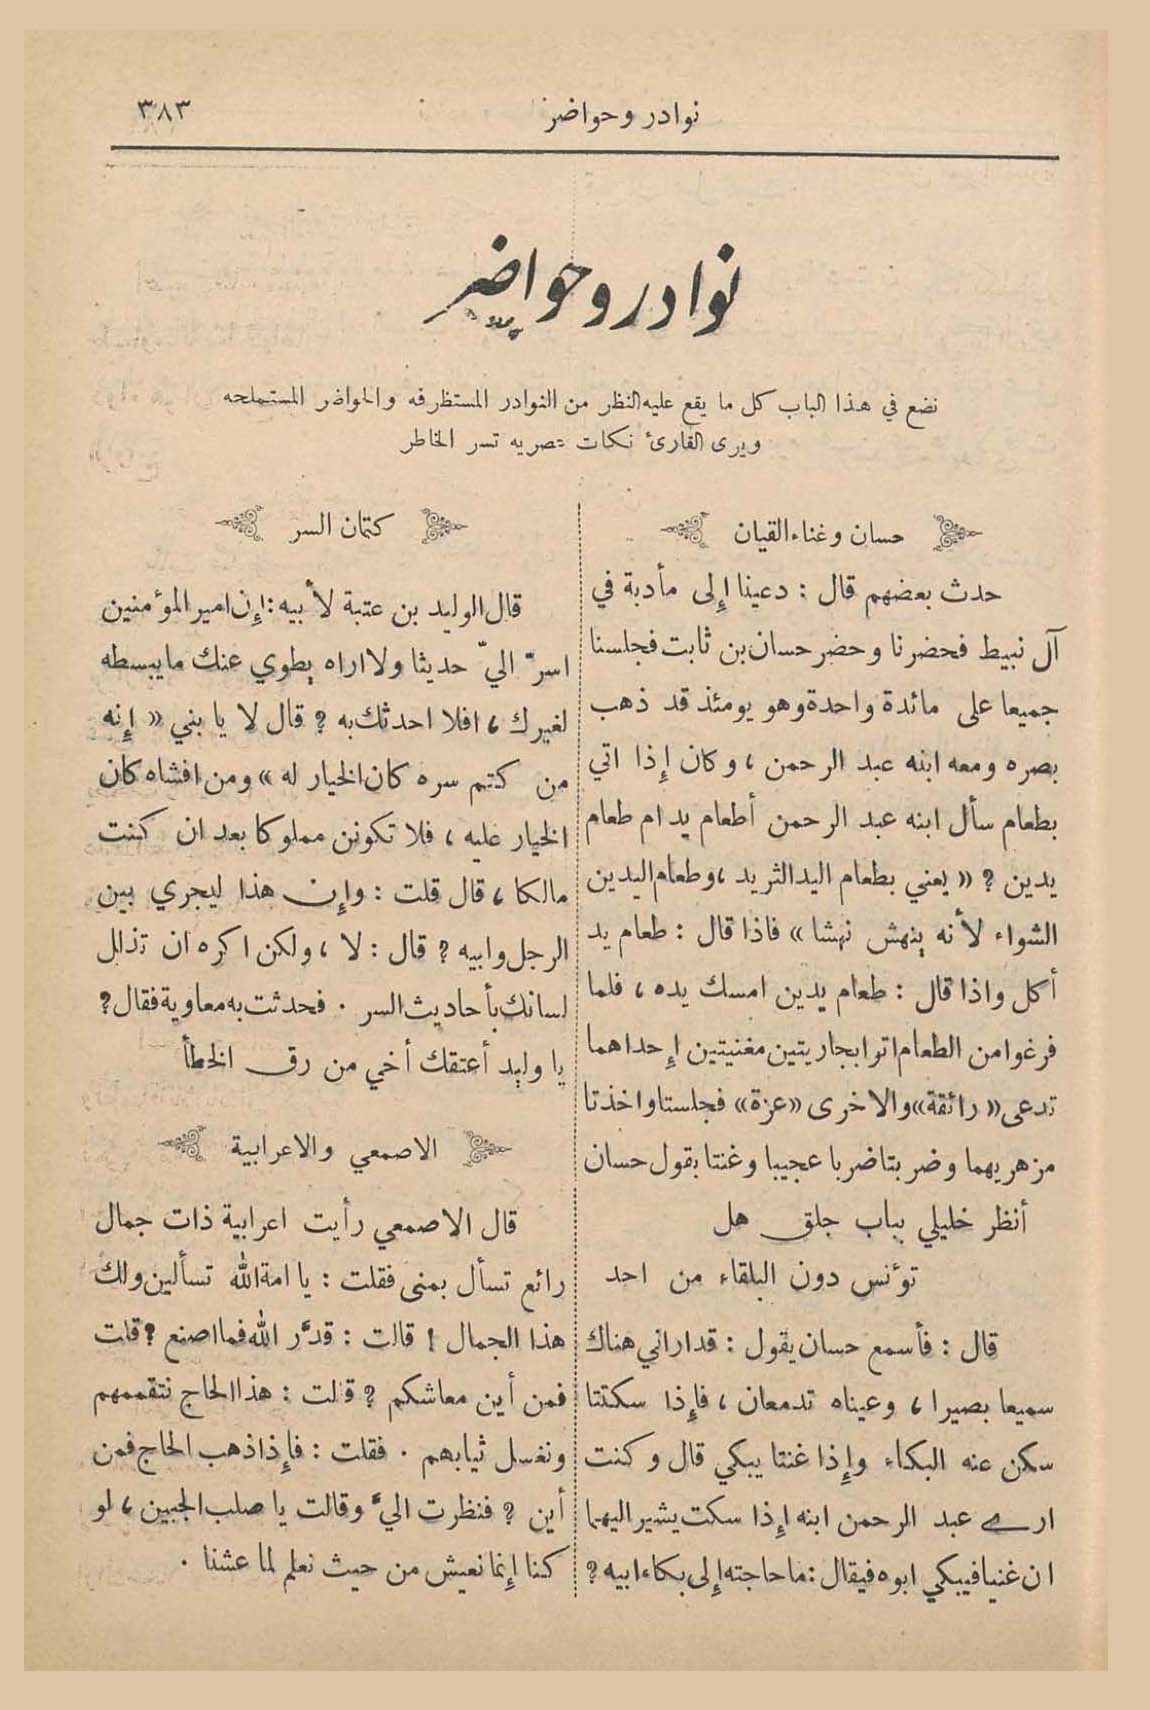 نوادر وحواضر
٣٨٣
نوادر وحواضر
نضع في هذا الباب كل ما يقع عليه النظر من النوادر المستظرفه والحواضر المستملحه
ويرى القارئ نكات عصريه تسر الخاطر
حسان وغناء القيان
حدث بعضهم قال : دعينا إِلى مأدبة في
آل نبيط فحضرنا وحضر حسان بن ثابت فجلسنا
جميعا على مائدة واحدة وهو يومئذ قد ذهب
بصره ومعه ابنه عبد الرحمن ، وكان إِذا اتي
بطعام سأل ابنه عبد الرحمن أطعام يد ام طعام
يدين ? « يعني بطعام اليد الثريد ، وطعام اليدين
الشواء لأنه ينهش نهشا » فاذا قال : طعام يد
أكل واذا قال : طعام يدين امسك يده ، فلما
فرغوا من الطعام اتوا بجاريتين مغنيتين إِحداهما
تدعى « رائقة » والاخرى « عزة » فجلستا واخذتا
مزهريهما وضربتا ضربا عجيبا وغنتا بقول حسان
أنظر خليلي بباب جلق هل
تؤنس دون البلقاء من احد
قال : فأسمع حسان يقول : قد اراني هناك
سميعا بصيرا ، وعيناه تدمعان ، فإِذا سكتتا
سكن عنه البكاء وإِذا غنتا يبكي قال وكنت
ارى عبد الرحمن ابنه إِذا سكت يشير اليهما
ان غنيا فيبكي ابوه فيقال : ما حاجته إِلى بكاء ابيه ?
كتمان السر
قال الوليد بن عتبة لأبيه : إِن امير المؤمنين
اسرّ اليّ حديثا ولا اراه يطوي عنك ما يبسطه
لغيرك ، افلا احدثك به ? قال لا يا بني « إِنه
من كتم سره كان الخيار له » ومن افشاه كان
الخيار عليه ، فلا تكونن مملوكا بعد ان كنت
مالكا ، قال قلت : وإِن هذا ليجري بين
الرجل وابيه ? قال : لا ، ولكن اكره ان تذلل
لسانك بأحاديث السر . فحدثت به معاوية فقال ?
يا وليد أعتقك أخي من رق الخطأ
الاصمعي والاعرابية
قال الاصمعي رأيت اعرابية ذات جمال
رائع تسأل بمنى فقلت : يا امة الله تسألين ولك
هذا الجمال ! قالت : قدَّر الله فما اصنع ? قلت
فمن أين معاشكم ? قالت : هذا الحاج نتقممهم
ونغسل ثيابهم . فقلت : فإِذا ذهب الحاج فمن
أين ? فنظرت اليَّ وقالت يا صلب الجبين ، لو
كنا إِنما نعيش من حيث نعلم لما عشنا .